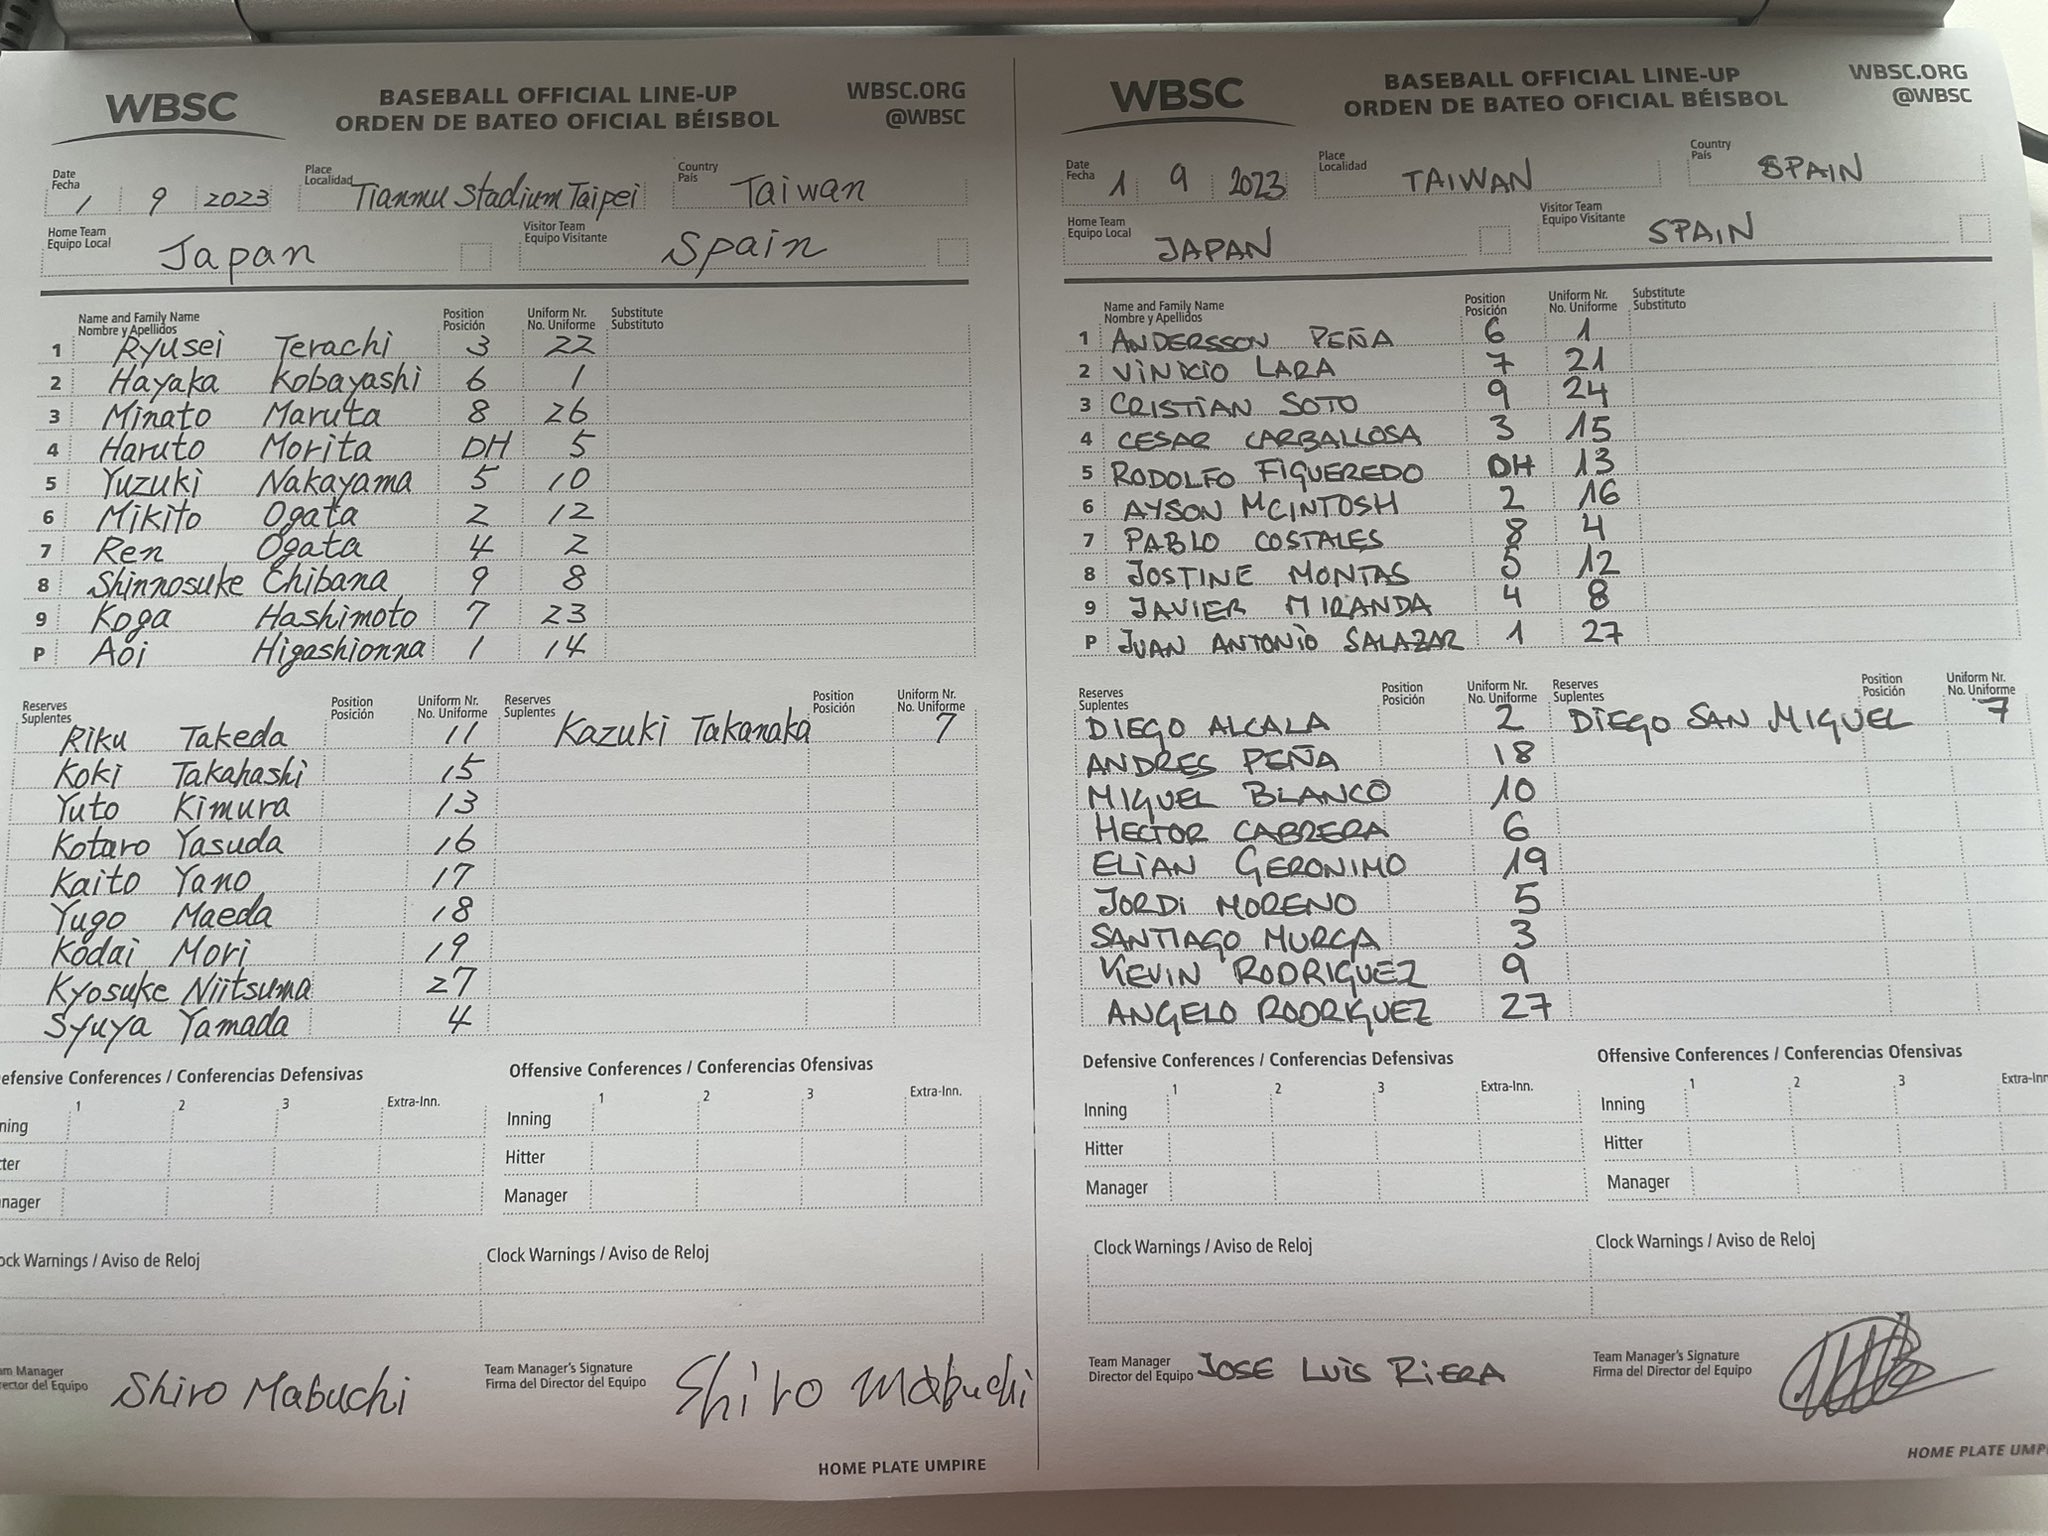 WBSC
BASEBALL OFFICIAL LINE-UP
ORDEN DE BATEO OFICIAL BÉISBOL
WBSC.ORG
@WBSC
Date
Fecha
1 9 2023
Place
Localidad
Tianmu Stadium Taipei
Country
País
Taiwan
Home Team
Equipo Local
Japan
Visitor Team
Equipo Visitante
Spain
Name and Family Name
Nombre y Apellidos
Position
Posición
Uniform Nr.
No. Uniforme
Substitute
Substituto
1 Ryusei Terachi 3 22
2 Hayaka Kobayashi 6 1
3 Minato Maruta 8 26
4 Haruto Morita DH 5
5 Yuzuki Nakayama 5 10
6 Mikito Ogata 2 12
7 Ren Ogata 4 2
8 Shinnosuke Chibana 9 8
9 Koga Hashimoto 7 23
P Aoi Higashionna 1 14
Reserves
Suplentes
Position
Posición
Uniform Nr.
No. Uniforme
Reserves
Suplentes
Position
Posición
Uniform Nr.
No. Uniforme
Riku Takeda 11 Kazuki Takanaka 7
Koki Takahashi 15
Yuto Kimura 13
Kotaro Yasuda 16
Kaito Yano 17
Yugo Maeda 18
Kodai Mori 19
Kyosuke Niitsuma 27
Syuya Yamada 4
efensive Conferences / Conferencias Defensivas
1 2 3 Extra-Inn.
ning
tter
nager
Offensive Conferences / Conferencias Ofensivas
1 2 3 Extra-Inn.
Inning
Hitter
Manager
ock Warnings / Aviso de Reloj
Clock Warnings / Aviso de Reloj
am Manager
rector del Equipo
Shiro Mabuchi
Team Manager's Signature
Firma del Director del Equipo
Shiro Mabuchi
HOME PLATE UMPIRE
WBSC
BASEBALL OFFICIAL LINE-UP
ORDEN DE BATEO OFICIAL BÉISBOL
WBSC.ORG
@WBSC
Date
Fecha
1 9 2023
Place
Localidad
TAIWAN
Country
País
SPAIN
Home Team
Equipo Local
JAPAN
Visitor Team
Equipo Visitante
SPAIN
Name and Family Name
Nombre y Apellidos
Position
Posición
Uniform Nr.
No. Uniforme
Substitute
Substituto
1 ANDERSSON PEÑA 6 1
2 VINICIO LARA 7 21
3 CRISTIAN SOTO 9 24
4 CESAR CARBALLOSA 3 15
5 RODOLFO FIGUEREDO DH 13
6 AYSON MCINTOSH 2 16
7 PABLO COSTALES 8 4
8 JOSTINE MONTAS 5 12
9 JAVIER MIRANDA 4 8
P JUAN ANTONIO SALAZAR 1 27
Reserves
Suplentes
Position
Posición
Uniform Nr.
No. Uniforme
Reserves
Suplentes
Position
Posición
Uniform Nr.
No. Uniforme
DIEGO ALCALA 2 DIEGO SAN MIGUEL 7
ANDRES PEÑA 18
MIGUEL BLANCO 10
HECTOR CABRERA 6
ELIAN GERONIMO 19
JORDI MORENO 5
SANTIAGO MURGA 3
KEVIN RODRIGUEZ 9
ANGELO RODRIGUEZ 27
Defensive Conferences / Conferencias Defensivas
1 2 3 Extra-Inn.
Inning
Hitter
Manager
Offensive Conferences / Conferencias Ofensivas
1 2 3 Extra-Inn.
Inning
Hitter
Manager
Clock Warnings / Aviso de Reloj
Clock Warnings / Aviso de Reloj
Team Manager
Director del Equipo
JOSE LUIS RIERA
Team Manager's Signature
Firma del Director del Equipo
HOME PLATE UMP